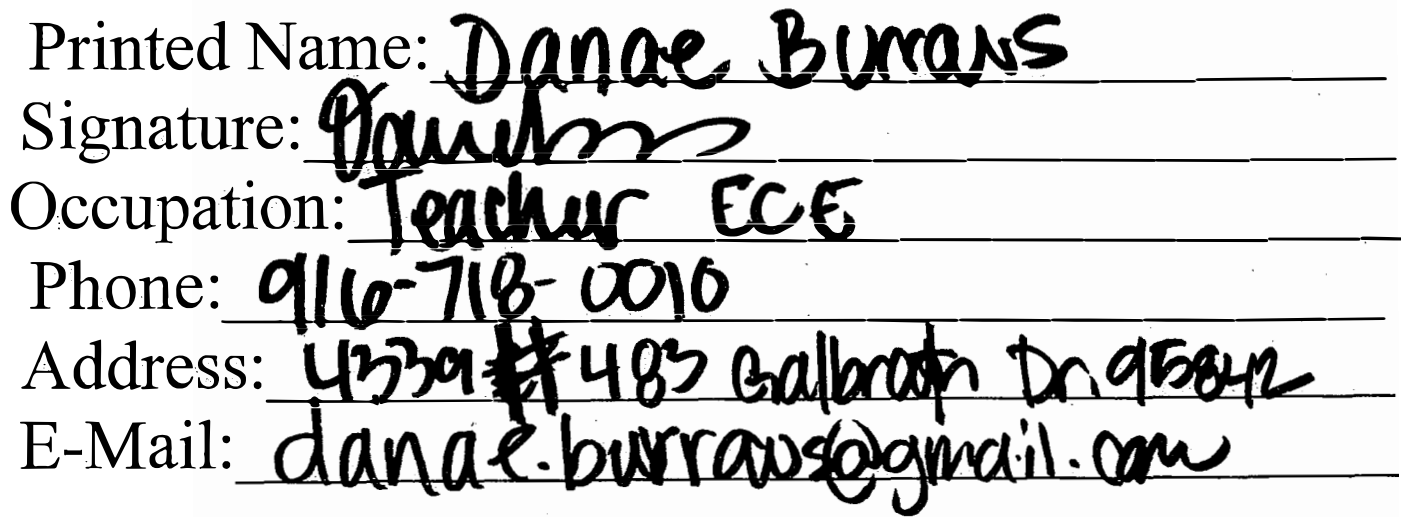 Printed Name: Danae Burraws
Signature:
Occupation: Teacher ECE
Phone: 916-718-0010
Address: 4339 #483 Galbrath Dr. 95842
E-Mail: danae.burraws@gmail.com